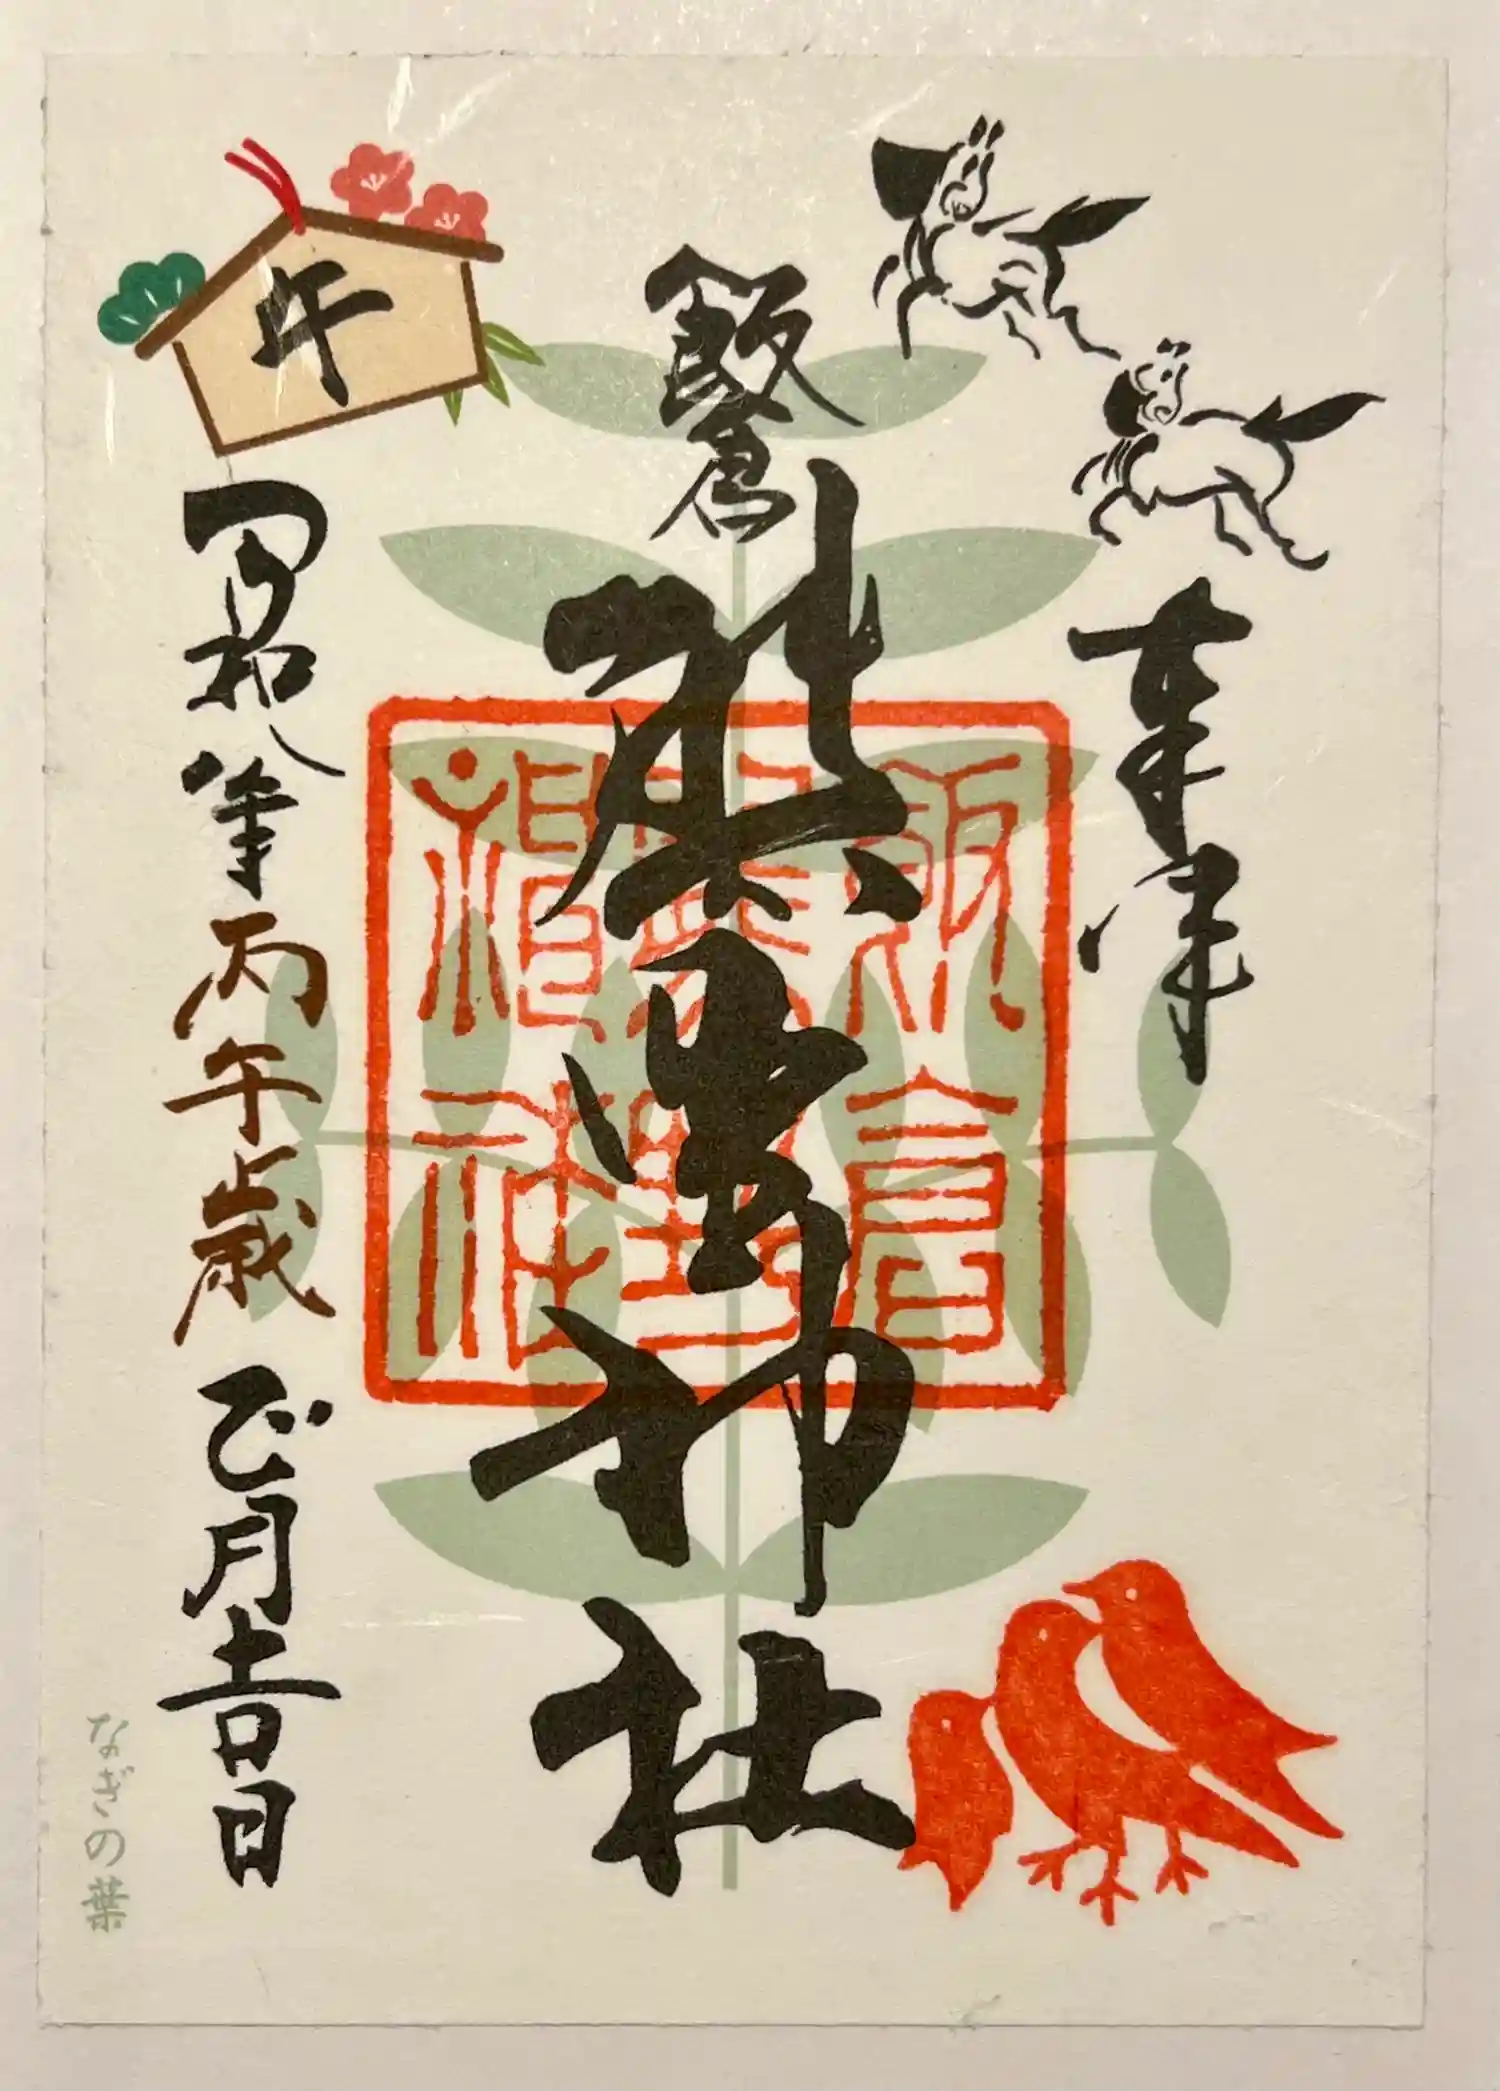 奉拝
飯倉
熊野神社
午
令和八年丙午歳正月吉日
なぎの葉
飯倉
熊野
神社